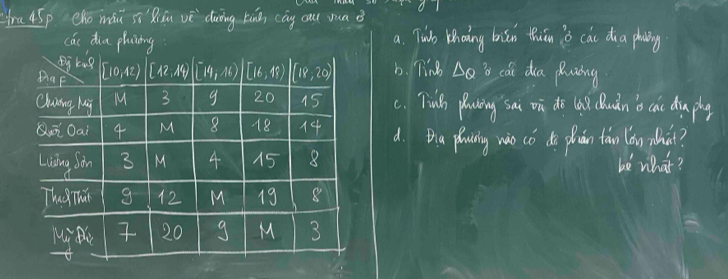 45p Cho mẫu số liệu về đường kính cây cau vua ở
các địa phương:
Đg kính [10,12) [12,14) [14,16) [16,18) [18,20)
Địa P
Chương Mỹ M 3 9 20 15
Quốc Oai 4 M 8 18 14
Lương Sơn 3 M 4 15 8
Thạch Thất 9 12 M 19 8
Mỹ Đức 7 20 9 M 3
a. Tính khoảng biến thiên ở các địa phương.
b. Tính ΔQ ở các địa phương
c. Tính phương sai và độ lệch chuẩn ở các địa phg
d. Địa phương nào có độ phân tán lớn nhất?
bé nhất?